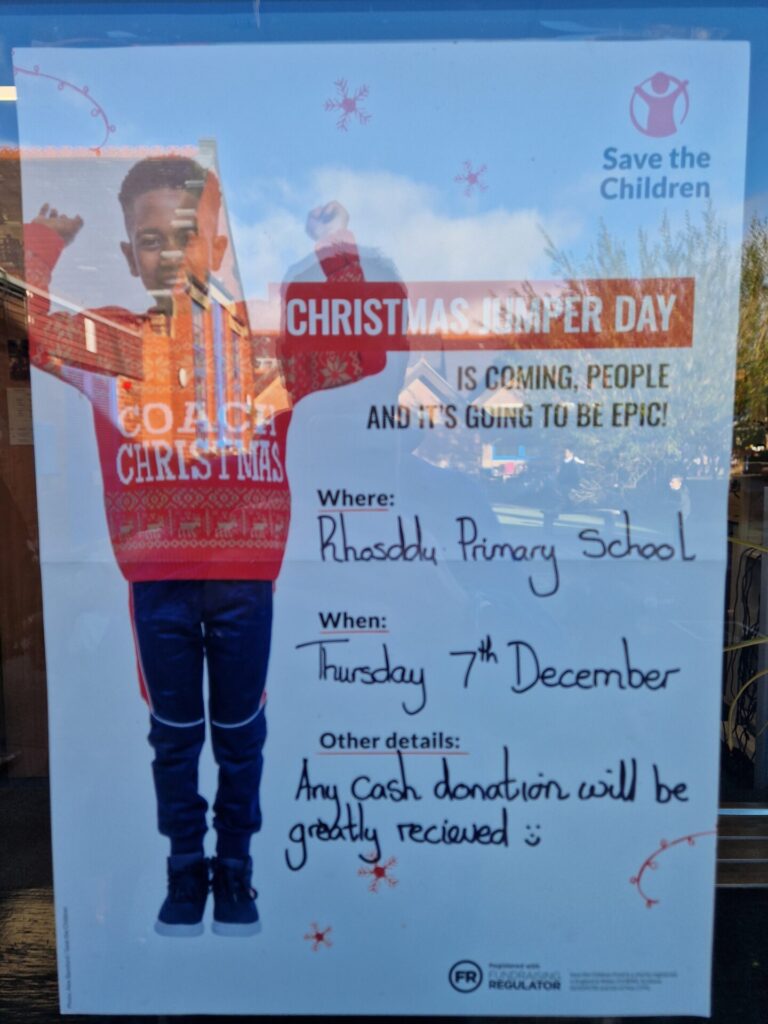 Save the
Children
CHRISTMAS JUMPER DAY
IS COMING, PEOPLE
AND IT'S GOING TO BE EPIC!
COACH
CHRISTMAS
Where:
Rhosddu Primary School
When:
Thursday 7th December
Other details:
Any cash donation will be
greatly recieved
FR
Registered with
FUNDRAISING
REGULATOR